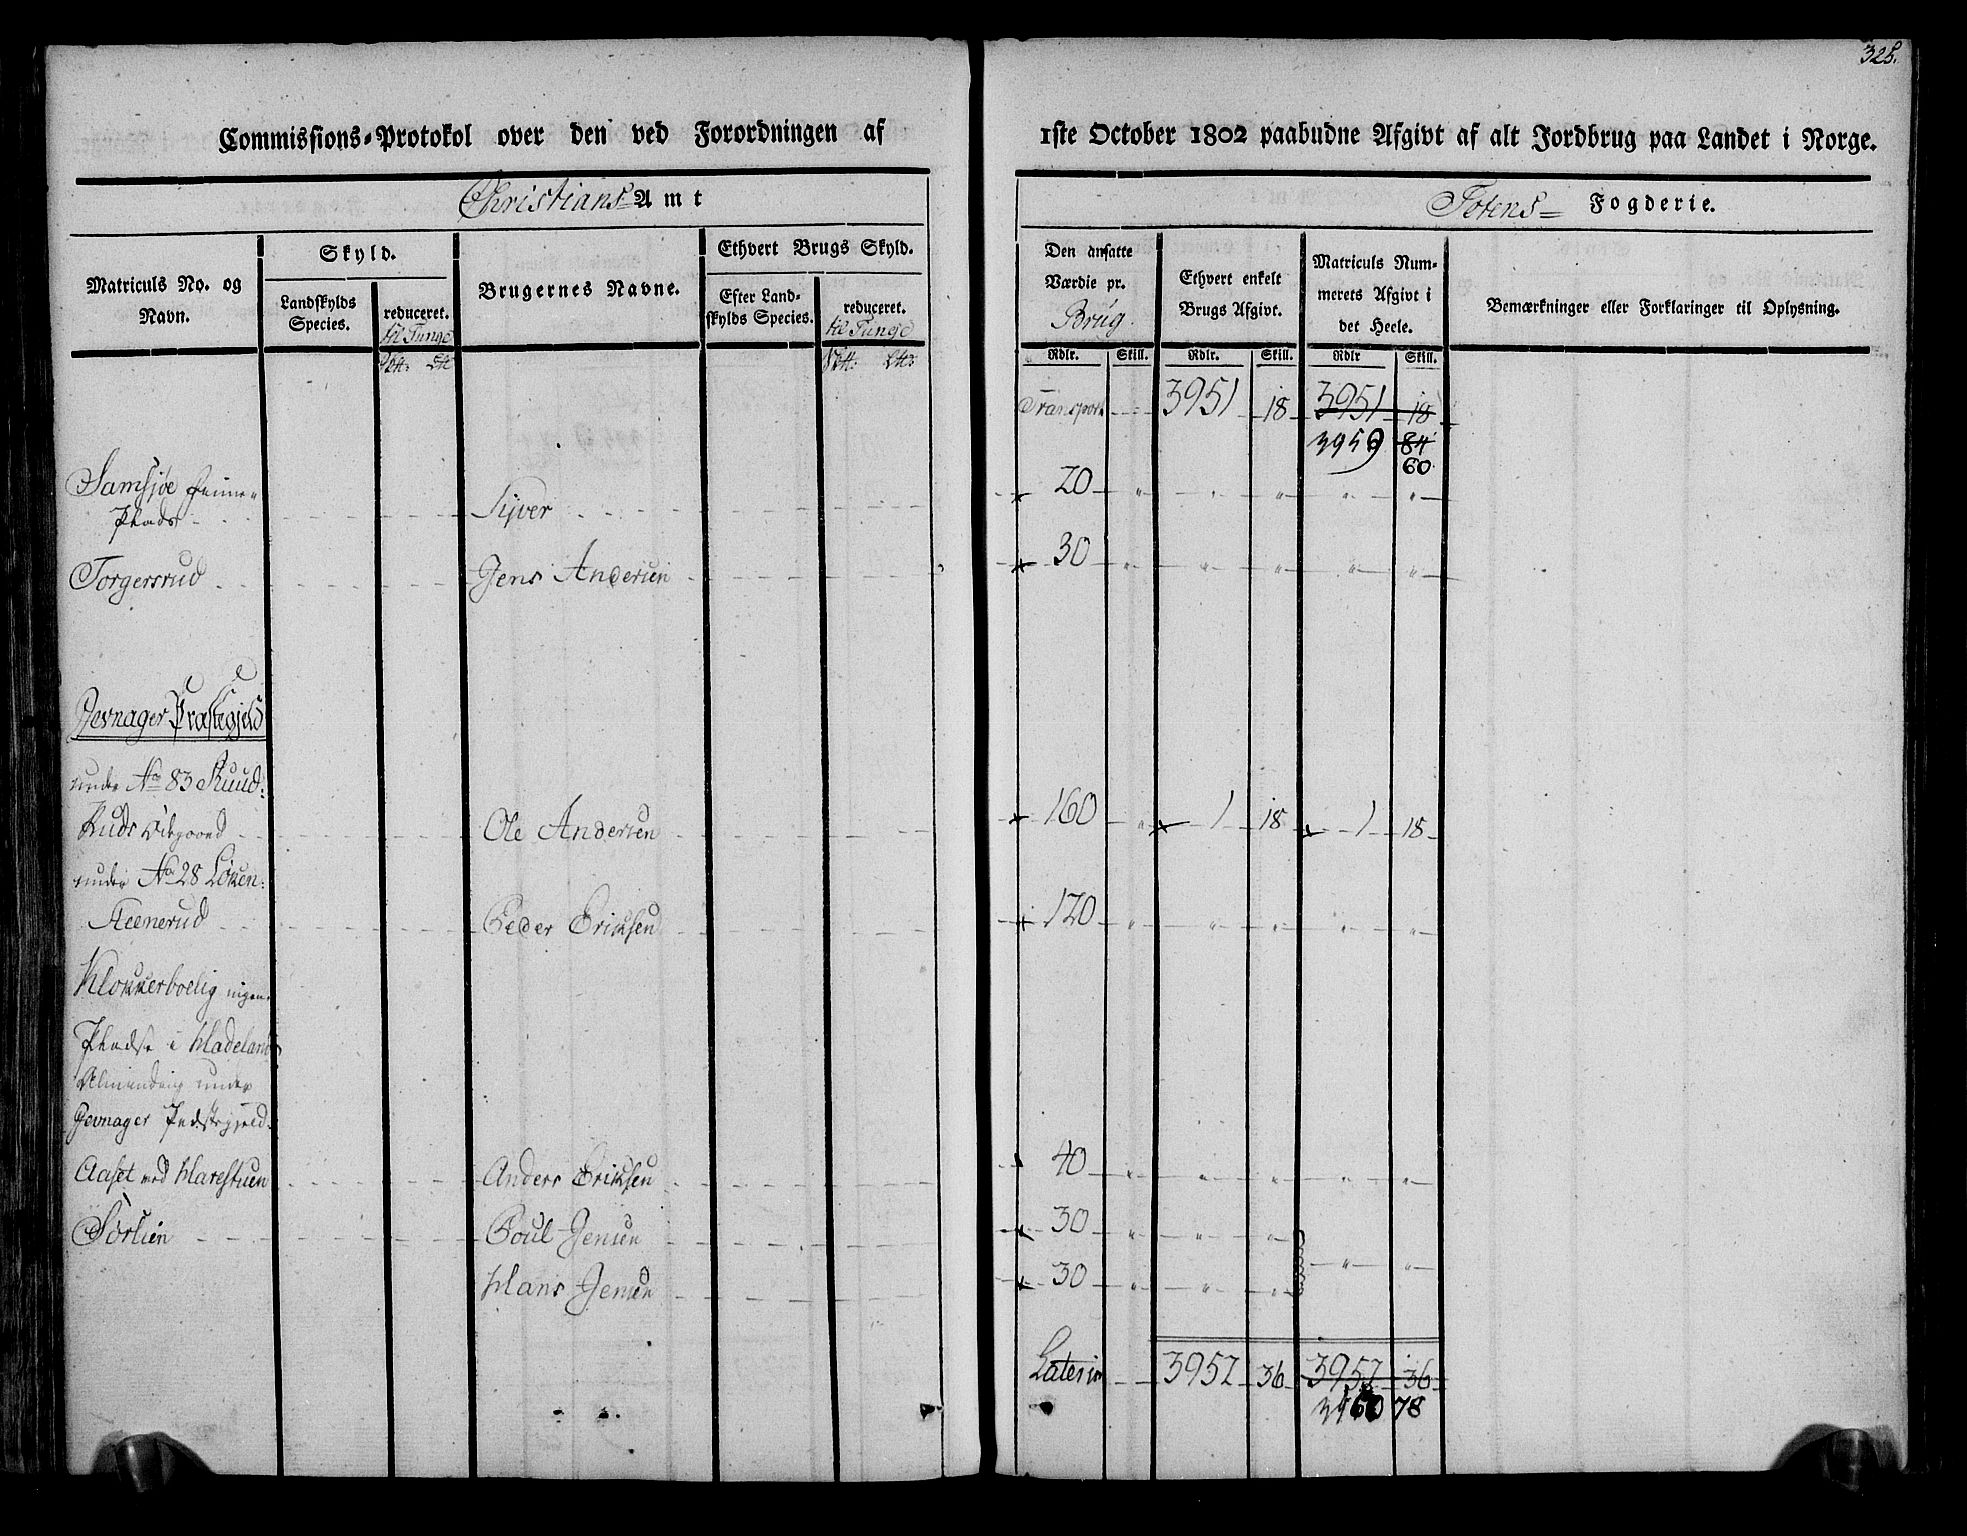 328.
Commissions-Protokol over den ved Forordningen af 1ste October 1802 paabudne Afgivt af alt Jordbrug paa Landet i Norge.
Christians Amt
Totens Fogderie.
Matriculs No. og Navn.
Skyld.
Landskylds Species.
reduceret. til Tunge
Brugernes Navne.
Ethvert Brugs Skyld.
Efter Landskylds Species.
reduceret. til Tunge
Den ansatte Værdie pr. Brug.
Ethvert enkelt Brugs Afgivt.
Matriculs Nummerets Afgivt i det Heele.
Bemærkninger eller Forklaringer til Oplysning.
Rdlr. Skill. Rdlr. Skill. Rdlr Skill.
Transport 3951 18 3951 18
3959 84
60
Samsjøe
Plads Syver 20
Torgersrud Jens Andersen 30
Jevnager Præstegjeld
under No 83 Ruud:
Ruds Ødegaard Ole Andersen 160 1 18 1 18
under No 28 Løken:
Steenerud Peder Eriksen 120
Klokkerboelig ingen
Pladse i Hadeland
Almindvig under
Jevnager Præstegjeld
Aaset ved Harestuen Anders Eriksen 40
Sørlien Poul Jensen 30
Hans Jensen 30
Lateris 3952 36 3952 36
3960 78